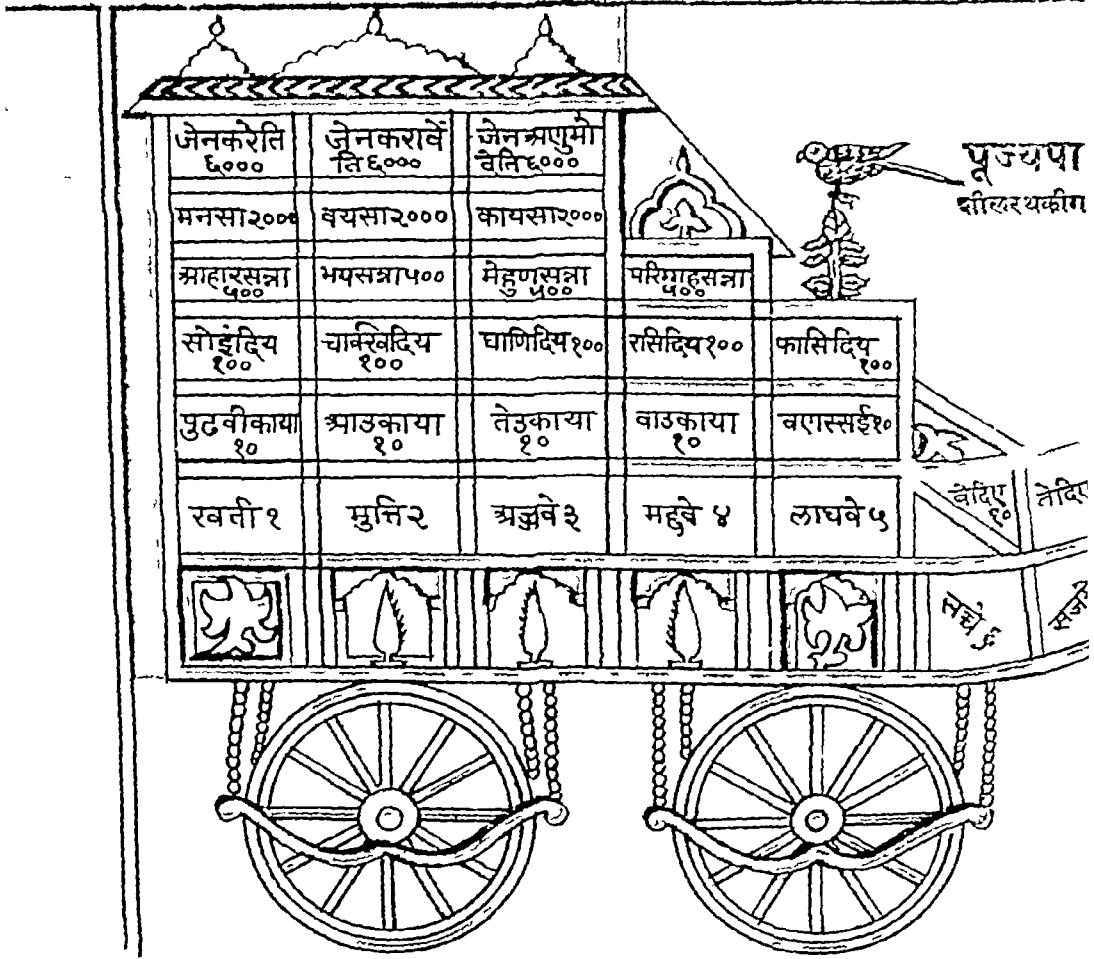 जेनकरेति
६०००
जेनकरावें
ति६०००
जेनअणुमो
वेति६०००
पूज्यपा
शीलरथकीग
मनसा२०००
वयसा२०००
कायसा२०००
आहारसन्ना
५००
भयसन्ना५००
मेहुणसन्ना
५००
परिग्गहसन्ना
५००
सोइंदिय
१००
चक्खिदिय
१००
घाणिदिय१००
रसिदिय१००
फासिदिय
१००
पुढवीकाया
१०
आउकाया
१०
तेउकाया
१०
वाउकाया
१०
वणस्सई१०
वेदिए
१०
तेदिए
खती१
मुत्ति२
अज्जवे३
मद्दवे ४
लाघवे५
सच्चे ६
संज